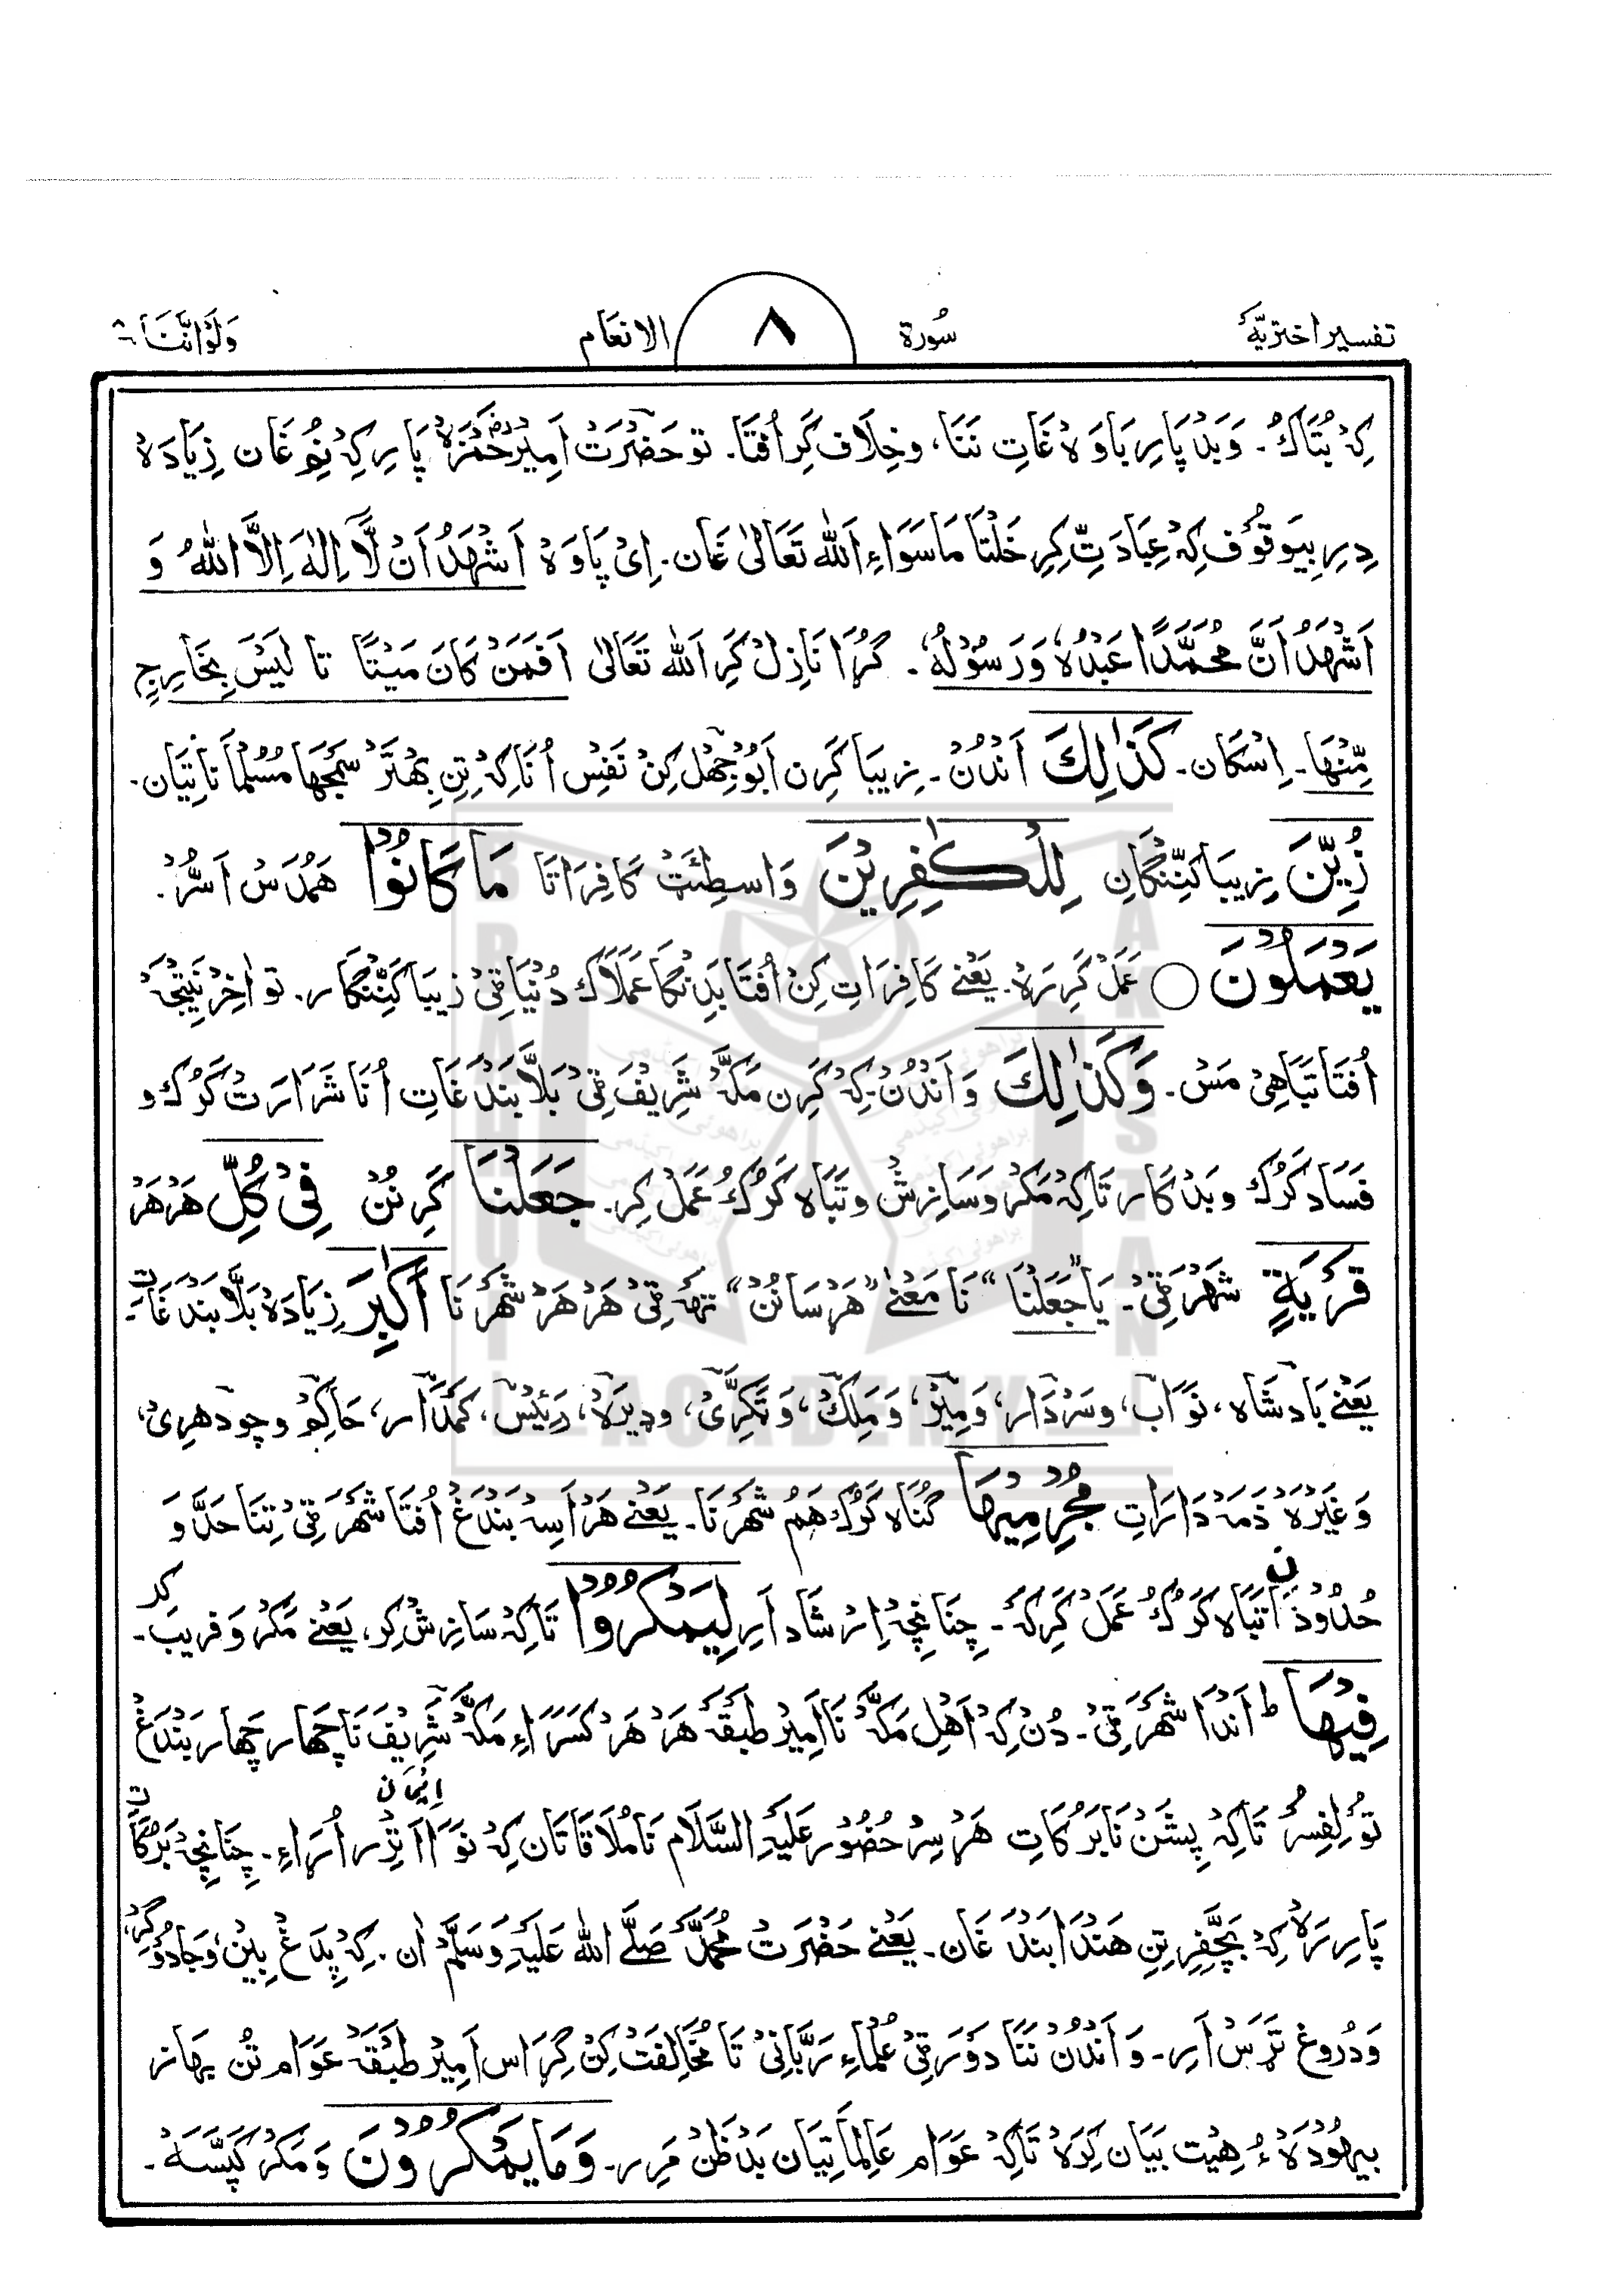 تفسیر اختریہ سُورة ٨ الانعام وَلَوْ اَنَّنَا ٨
کِہ بُتَاکْ۔ وَبَدْ پَارِ بَاوَہ غَاتِ نَنَا، وخِلَاف کَرِ اُفتَا۔ تو حَضْرَتْ اَمِیْر حَمْزَہْ پَارِ کِہ نُمْ غَان زِیَادَہ
دِرِ بِیوَقُوْف کِہ عِبَادَتِّ کِرِ خَلْتَا مَاسَوَاءِ اَللّٰه تَعَالیٰ غَان۔ اِیْ پَاوَہْ اَشْهَدُ اَنْ لَّا اِلٰهَ اِلَّا اللّٰهُ وَ
اَشْهَدُ اَنَّ مُحَمَّدًا عَبْدُهٗ وَرَسُوْلُهٗ۔ گُڑَا نَازِلْ کَرِ اَللّٰه تَعَالیٰ اَفَمَنْ کَانَ مَیْتًا تا لَیْسَ بِخَارِجٍ
مِّنْهَا۔ اِسْکَان۔ کَذٰلِكَ اَنْدُنْ۔ زِیبَا کَرِن اَبُوجَهْل کِنْ نَفْس اُنَا کِہ تِنِ بِهْتَرْ سَمْجَها مُسُلمَانَاتِیَان۔
زُیِّنَ زِیبَا کَنِّنْگَانِ لِلْکٰفِرِیْنَ وَاسِطَئَتْ کَافِرَاتَا مَا کَانُوْا هَمُدَسْ اَسُّرْ۔
یَعْمَلُوْنَ ○ عَمَلْ کَرِرَہْ۔ یَعْنے کَافِرَاتِ کِنْ اُفْتَا بَدِنْگَا عَمَلَاکْ دُنْیَا ٹِیْ زیبَا کَنِّنْگَار۔ تو اٰخِرْ نَتِیْجَہ
اُفتَا تَبَاهِیْ مَسْ۔ وَکَذٰلِكَ وَاَنْدُنْ کِہ کَرِن مَکَّہ شَرِیْفَ ٹِیْ بَلَّا بَنْدَغَاتِ اُنَا شَرَارَتْ کَرُوْکْ و
فَسَاد کَرُوْکْ وبَدْکَار تَاکِہ مَکْر وَسَازِشْ وتَبَاہ کَرُوْکُ عَمَلْ کِر۔ جَعَلْنَا کَرِنُنْ فِیْ کُلِّ هَرْهَرْ
قَرْیَةٍ شَهْرَ ٹِیْ۔ یَا "جَعَلْنَا" نَا مَعْنٰے "هَرْسَانُنْ" تهہ ٹِیْ هَرْهَرْ شَهْرَنَا اَکٰبِرَ زِیَادَہْ بَلَّا بَنْدَغَاتِ۔
یَعْنے بَادشَاہ، نَوَّاب، وسَرْدَار، وَمِیْر، وَمَلِکْ، وَٹَکِرِّیْ، وڈیرَہْ، رَئِیْس، کَمْدَار، حَاکِم وچودهرِیْ،
وَغَیْرَہْ ذمَہ دَارَاتِ مُجْرِمِیْهَا گُنَاہ کَرُوْکْ هَمُ شَهْرَنَا۔ یَعْنے هَرْاَسِہ بَنْدَغْ اُفْتَا شَهْرَ ٹِیْ تِنَا حَدَّ وَ
حُدُوْدَانِ تَبَاہ کَرُوْکُ عَمَلْ کَرِکَہ۔ چِنَانچِہ اِرْشَاد اَرِ لِیَمْکُرُوْا تَاکِہ سَازِشْ کِر، یَعْنے مَکْر وَفریبَ۔ کِر
فِیْهَا ط اَنْدَا شَهْرَ ٹِیْ۔ دُنْ کِہ اَهْلِ مَکَّہ نَا اَمِیْر طَبْقَہ هَرْ هَرْ کَسَرَاءِ مَکَّہ شَرِیْفَ نَا چَهار چَهار بَنْدَغْ
تُوْلِفِسُرْ تَاکِہ پِشَنْ نَا بَرُکَاتِ هَرْسِرْ حُضُوْر عَلَیْہِ السَّلَام نَا مُلَاقَاتَان کِہ نَوَا اِیْمَان اَتِرْ اُرَاءِ۔ چِنَانچِہ بَرُکَاتِ
پَارِرَہْ کِہ بَچِّفِر تِنِ هَنْدَا بَنْدَ غَان۔ یَعْنے حَضْرَتْ مُحَمَّدْ صَلَّے اللّٰه عَلَیْہِ وَسَلَّمْ اٰن۔ کِہ پِدَغْ بِیْن، وَجَادُوْگَرْ،
وَدُروغ تَرَسْ اَرِ۔ وَاَنْدُنْ نَنَا دَوْرَ ٹِیْ عُلَمَاءِ رَبَّانِیْ تَا مُخَالِفَتْ کِنْ گِرَاس اَمِیْر طَبْقَہ عَوَام تُنْ بهاز
بِیهُوْدَہْ ءُ هِیْت بَیَان کِرَہْ تَاکِہ عَوَام عَالِمَاتِیَان بَدْظَنْ مَرِر۔ وَمَا یَمْکُرُوْنَ وَمَکْر کَپَسَہْ۔